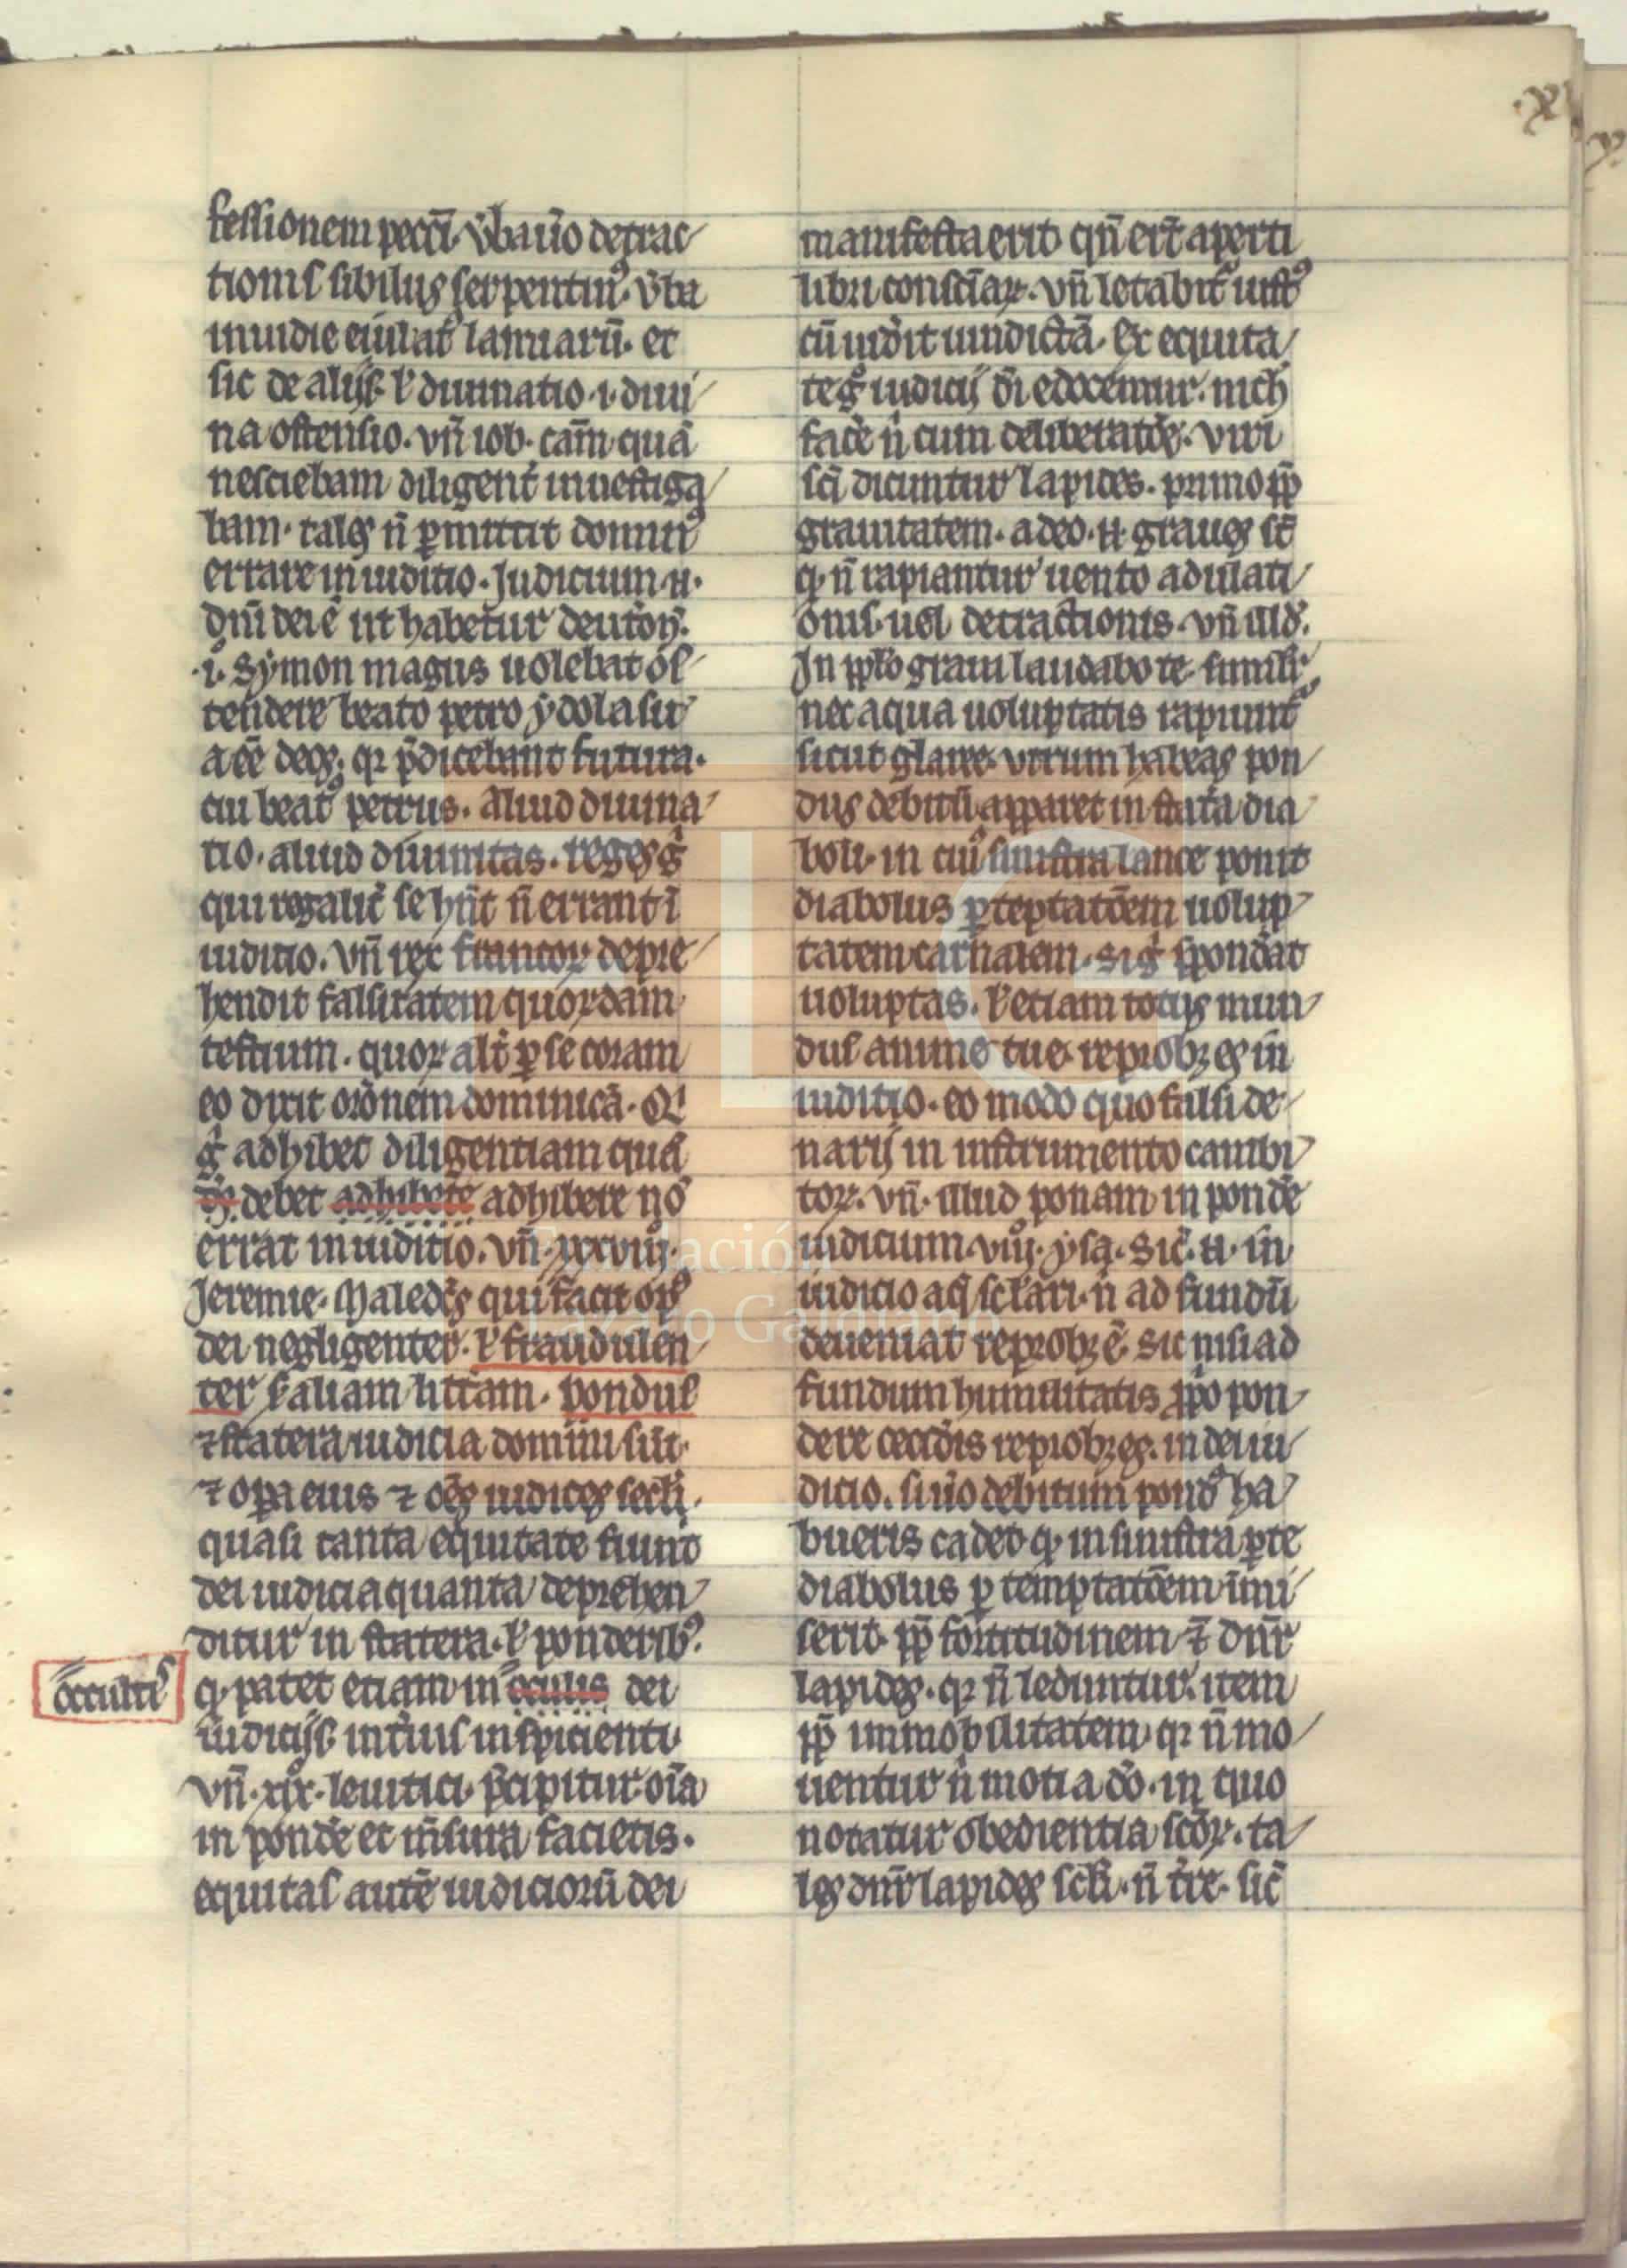 .x
fessionem pecc̄i. v̄ba ūo detrac
tionis sibilus serpentin᷒. v̄ba
inuidie eiulat᷒ lamiarū. et
sic de alijs. ł diuinatio .i. diui
na ostensio. vn̄ iob. cām quā
nesciebam diligent᷒ inuestiga
bam. tales n̄ ꝑmittit domin᷒
errare in iuditio. Judicium .n.
dn̄i dei ē ut habetur deut̄on̄.
.i. Symon magus uolebat os
tendere beato petro ydola su
a eē deos. qꝛ p̄dicebant futura.
cui beat᷒ petrus. Aliud diuina
tio. aliud diuinitas. reges g̊
qui regalit᷒ se hn̄t n̄ errant ī
iuditio. vn̄ rex francoꝝ depre
hendit falsitatem quoꝝdam
testium. quoꝝ alt᷒ ꝑ se coram
eo dixit or̄onem dominicā. Qi
g̊ adhibet diligentiam quā
debet adhibere adhibere nō
errat in iuditio. vn̄ .xxxviij.
Jeremie. Maledc̄s qui facit op᷒
dei negligenter. ł fraudulen
ter ẜ aliam litt̄am. pondus
⁊ statera iudicia domini sūt.
⁊ oꝑa eius ⁊ om̄s iudices sec̄li.
quasi tanta equitate fiunt
dei iudicia quanta deprehen
ditur in statera. ł ponderib᷒.
occultis
q̇ patet etiam in oculis dei
iudicijs int᷒ius inspicienti.
vn̄ .xix. leuitici. p̄cipitur oīa
in pond̄e et m̄sura facietis.
equitas autē iudiciorū dei
manifesta erit qn̄ er̄t aperti
libri consc̄iaꝝ. vn̄ letabit᷒ iust᷒
cū uid̄it uindictā. Ex equita
te g̊ iudicij dī edocemur. nich
fac̄e n̄ cum deliberatōe. viri
sc̄i dicuntur lapides. primo ꝓp
grauitatem. adeo .n. graues st̄
q̇ n̄ rapiantur uento adulati
onis. uel detractionis. vn̄ illd̄.
In ꝓplo graui laudabo te. similir
nec aqua uoluptatis rapiunt᷒
sicut glaree. vtrum habeas pon
dus debitū apparet in stat̄a dia
boli. in cui᷒ sinistra lance ponit
diabolus ꝑ teptatōem uolup
tatem carnalem. Si g̊ p̄pond̄at
uoluptas. ł etiam totus mun
dus anime tue. reprobꝫ es in
iuditio. eo modo quo falsi de
narij in instrumento cambi
toꝝ. vn̄. illud ponam in pond̄e
iudicium. viij. ysa. Sic̄ .n. in
iudicio aq̄ sc̄lari. n̄ ad fundū
deueniat reprobꝫ ē. Sic nisi ad
fundum humilitatis ꝓpo pon
dere cecid̄is reprobꝫ es. in dei iu
dicio. si ūo debitum pond᷒ ha
bueris cadet q̇ in sinistra ꝑte
diabolus ꝑ temptatōem īmi
serit. ꝓp fortitudinem ⁊ dn̄r
lapides. qꝛ n̄ leduntur. item
ꝓp immobilitatem. qꝛ n̄ mo
uentur n̄ moti a dō. in quo
notatur obedientia sc̄oꝝ. ta
les dn̄r lapides sc̄li. n̄ tr̄e. sic̄